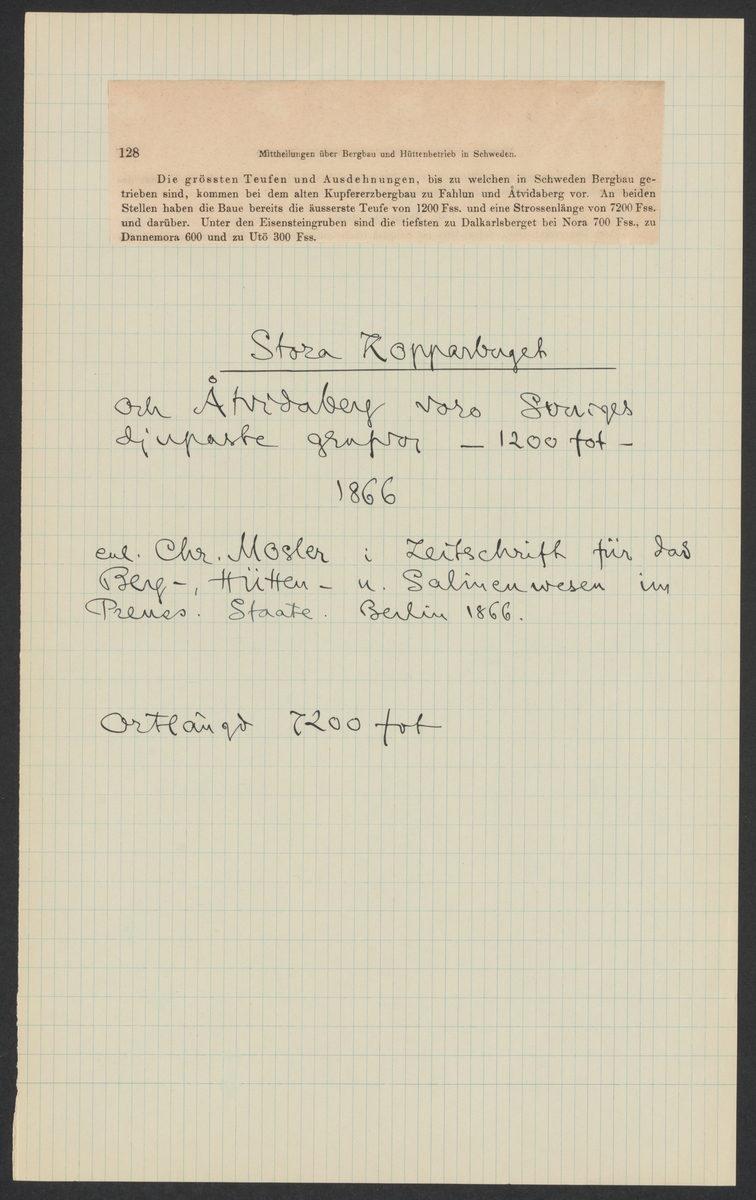 128 Mittheilungen über Bergbau und Hüttenbetrieb in Schweden.
Die grössten Teufen und Ausdehnungen, bis zu welchen in Schweden Bergbau ge-
trieben sind, kommen bei dem alten Kupfererzbergbau zu Fahlun und Åtvidaberg vor. An beiden
Stellen haben die Baue bereits die äusserste Teufe von 1200 Fss. und eine Strossenlänge von 7200 Fss.
und darüber. Unter den Eisensteingruben sind die tiefsten zu Dalkarlsberget bei Nora 700 Fss., zu
Dannemora 600 und zu Utö 300 Fss.
Stora Kopparberget
och Åtvidaberg voro Sveriges
djupaste grufvor — 1200 fot —
1866
enl. Chr. Mosler i Zeitschrift für das
Berg-, Hütten- u. Salinenwesen im
Preuss. Staate. Berlin 1866.
Ortlängd 7200 fot